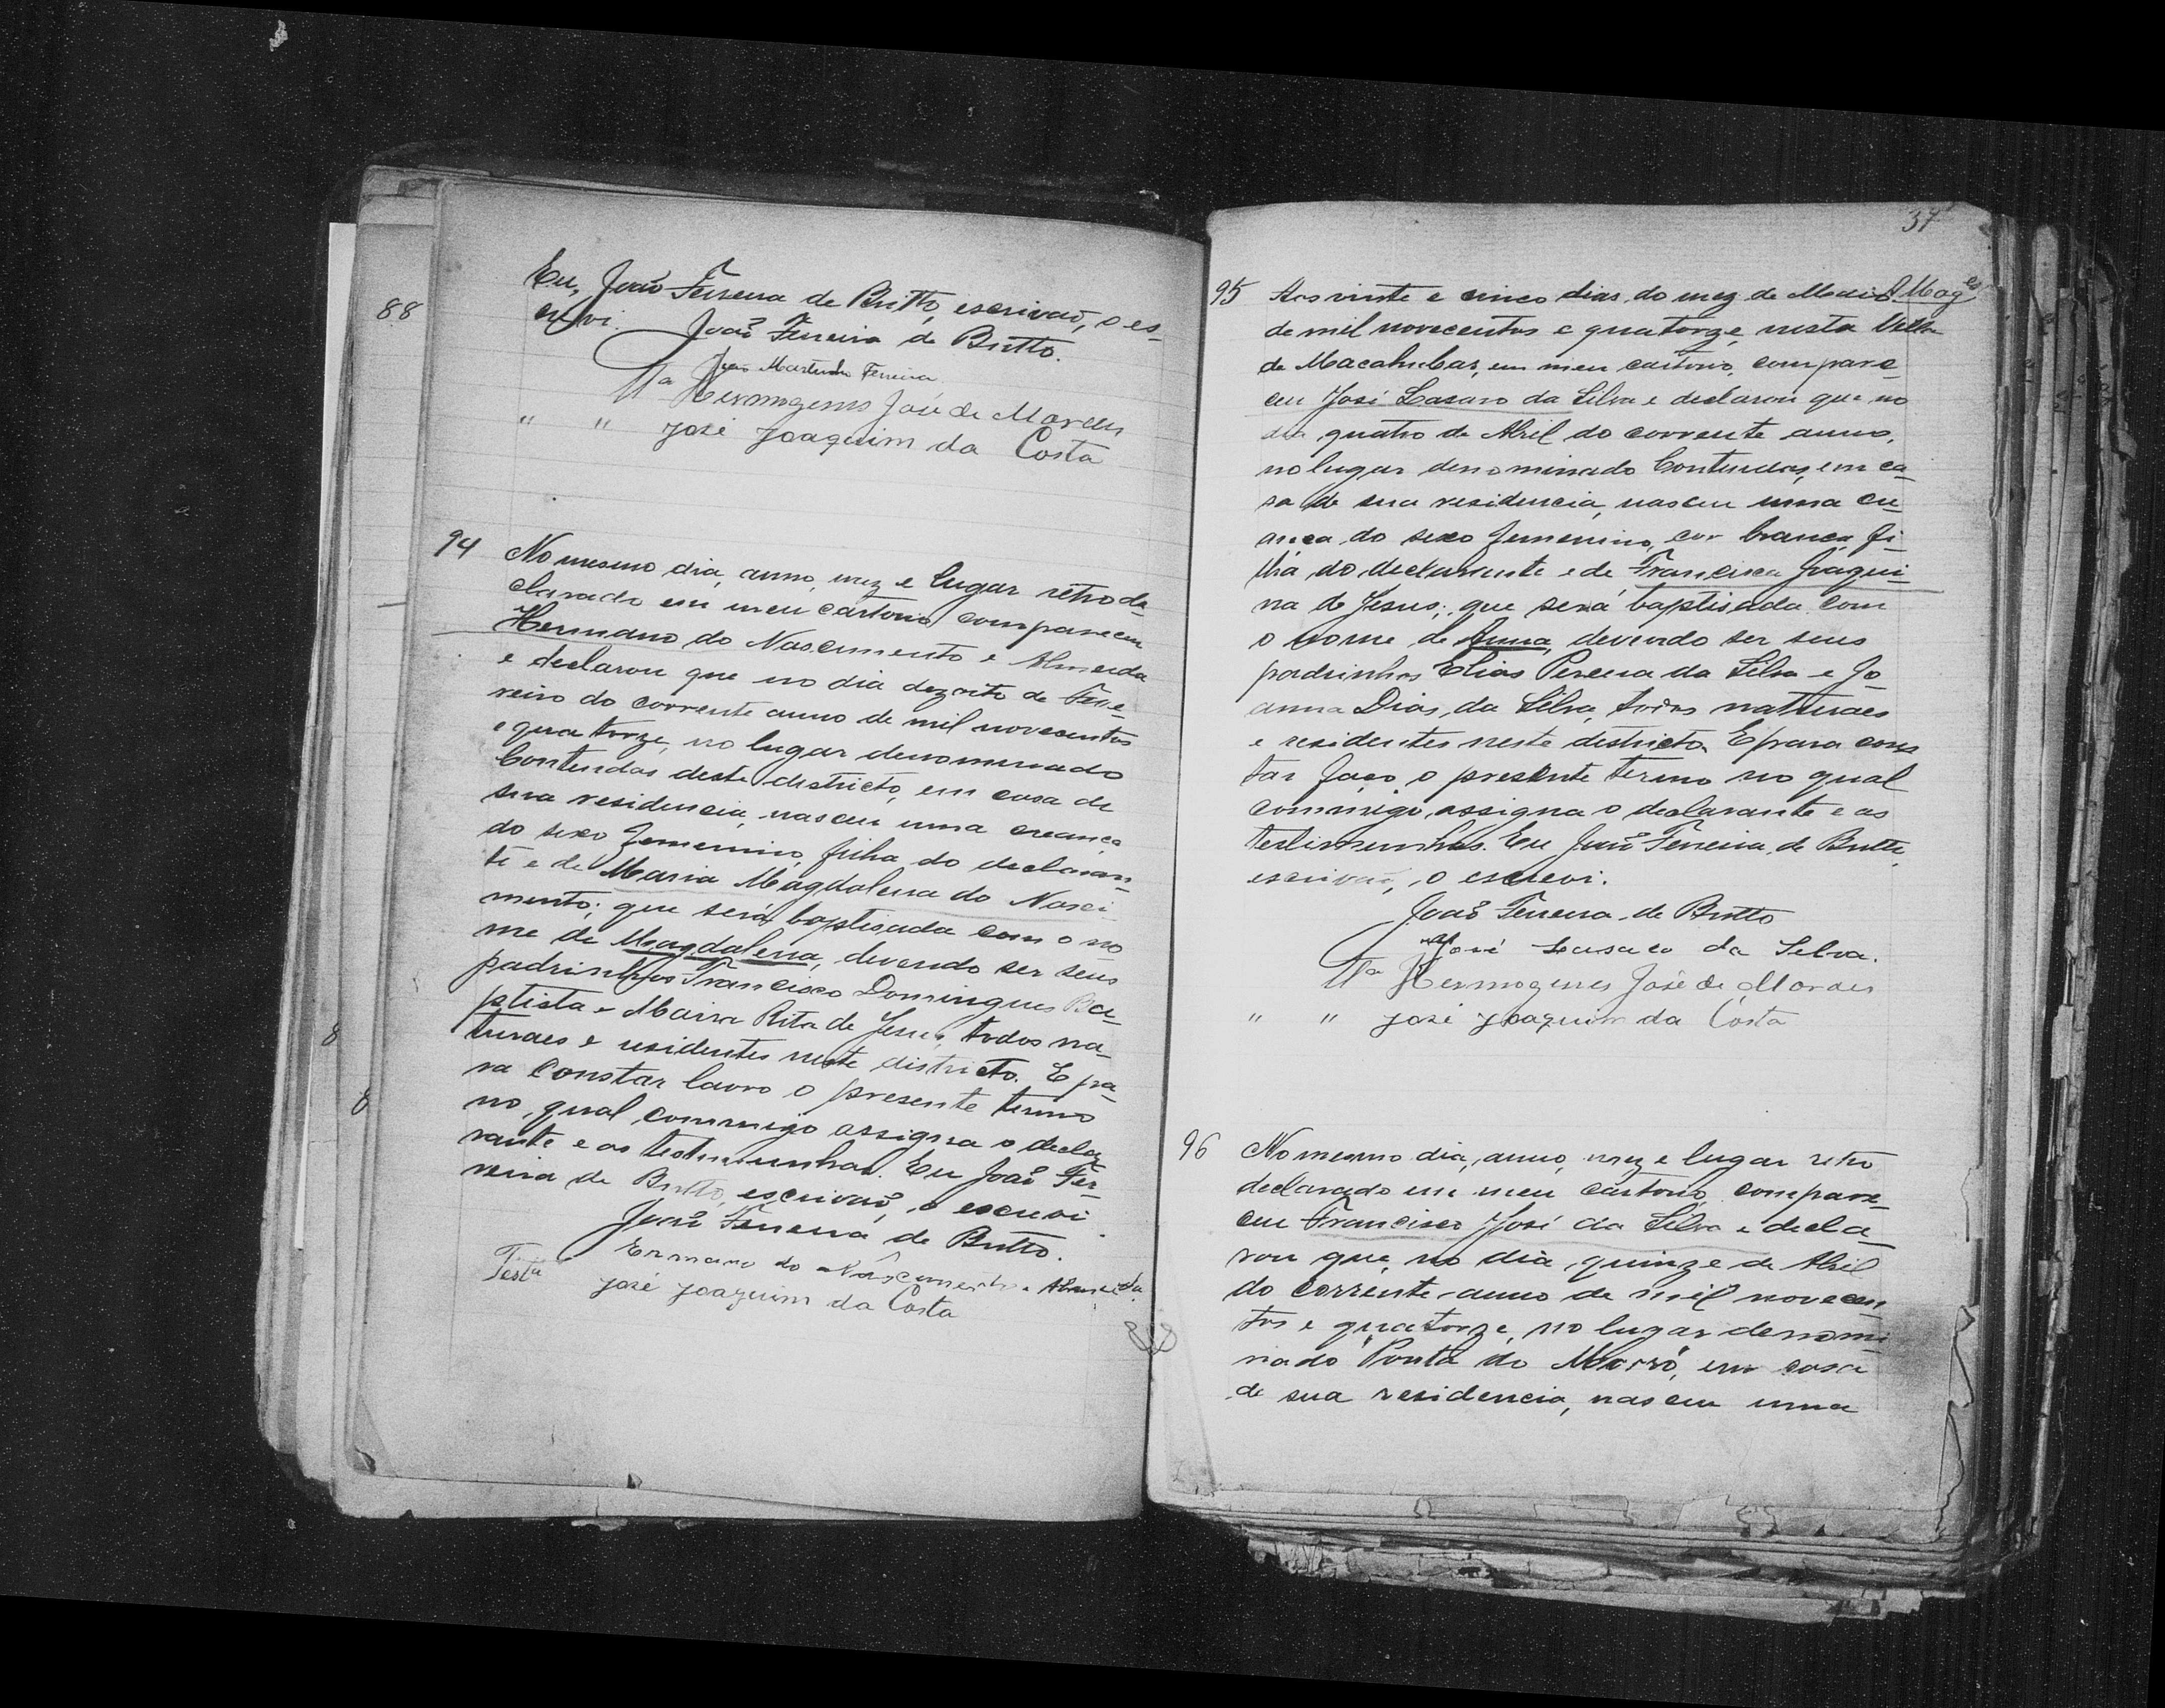 88
Eu, João Ferreira de Britto, escrivaõ, o es-
crevi.
João Ferreira de Britto.
João Martinho Ferreira
Tª Hermogenes José de Moraes
" " José Joaquim da Costa
94
No mesmo dia, anno, mez e lugar retro de-
clarado em meu cartorio compareceu
Hermano do Nascimento e Almeida
e declarou que no dia dezoito de Feve-
reiro do corrente anno de mil novecentos
e quatorze, no lugar denominado
Contendas deste districto, em casa de
sua residencia, nasceu uma creança
do sexo femenino, filha do declaran-
te e de Maria Magdalena do Nasci-
mento; que será baptisada com o no
me de Magdalena, devendo ser seus
padrinhos Francisco Domingues Ba-
ptista e Maria Rita de Jesus, todos na-
turaes e residentes neste districto. E pa-
ra constar lavro o presente termo
no qual commigo assigna o decla-
rante e as testemunhas. Eu João Fer-
reira de Britto, escrivaõ, o escrevi.
João Ferreira de Britto.
Ermano do Nascimento e Almeida
Testª José Joaquim da Costa
8
8
37
95
Aos vinte e cinco dias do mez de Maio
de mil novecentos e quatorze, nesta Villa
de Macahubas, em meu cartorio, compare-
ceu José Lasaro da Silva e declarou que no
dia quatro de Abril do corrente anno,
no lugar denominado Contendas, em ca-
sa de sua residencia, nasceu uma cre-
ança do sexo femenino, cor branca, fi-
lha do declarante e de Francisca Joaqui-
na de Jesus; que será baptisada com
o nome de Anna, devendo ser seus
padrinhos Elias Pereira da Silva e Jo-
anna Dias da Silva, todos naturaes
e residentes neste districto. E para cons
tar faço o presente termo no qual
commigo assigna o declarante e as
testimunhas. Eu João Ferreira de Britto,
escrivaõ, o escrevi.
João Ferreira de Britto
José Lasaro da Silva.
Tª Hermogenes José de Moraes
" " José Joaquim da Costa
96
No mesmo dia, anno, mez e lugar retro
declarado em meu cartorio compare-
ceu Francisco José da Silva e decla-
rou que no dia quinze de Abril
do corrente anno de mil novecen
tos e quatorze, no lugar denomi
nado "Ponta do Morro", em casa
de sua residencia, nasceu uma